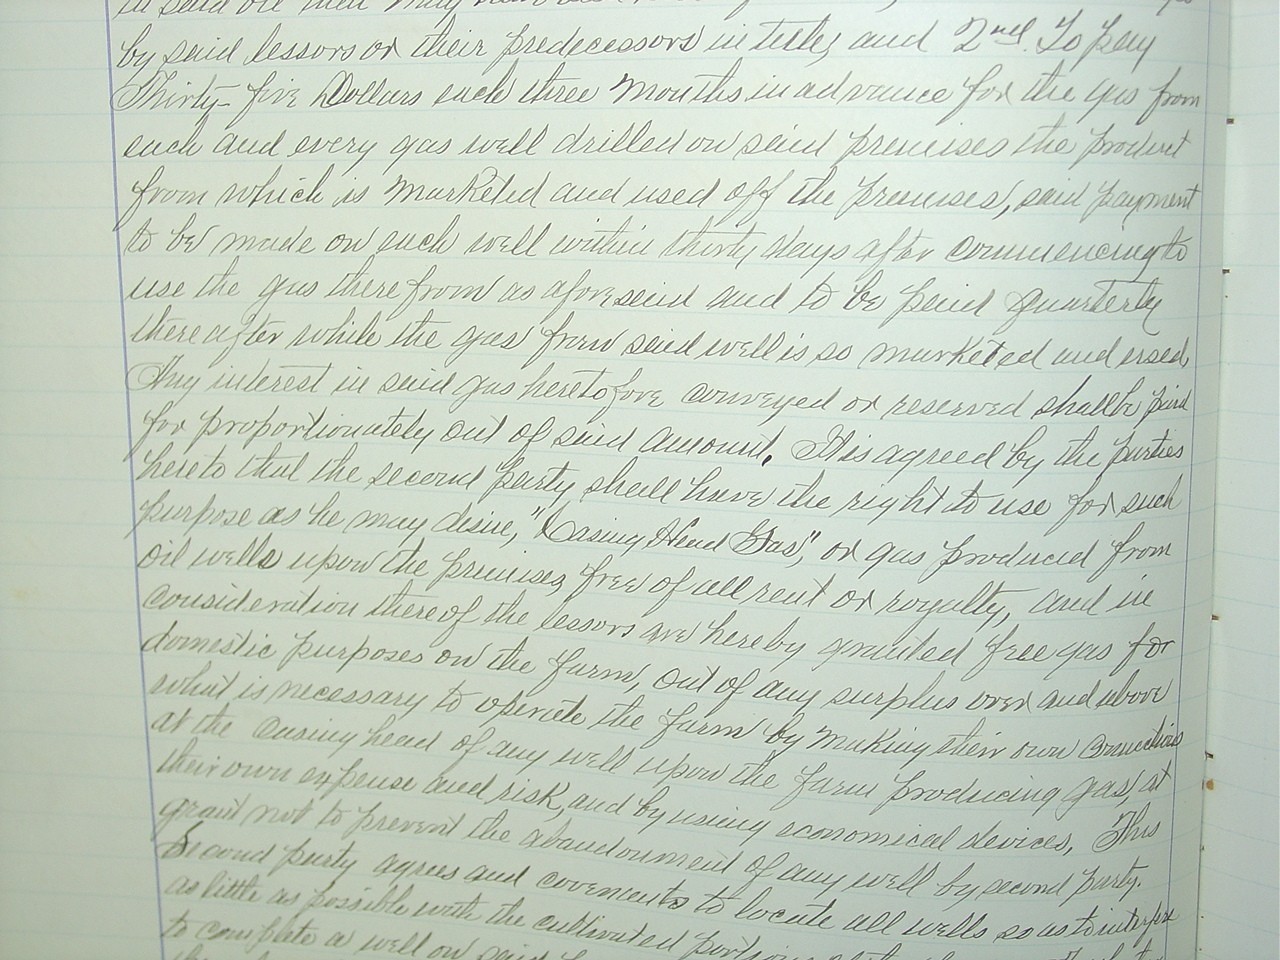 in said oil
by said lessors or their predecessors in title, and 2nd. To pay
Thirty-five Dollars each three months in advance for the gas from
each and every gas well drilled on said premises the product
from which is marketed and used off the premises, said payment
to be made on each well within thirty days after commencing to
use the gas therefrom as aforesaid and to be paid quarterly
thereafter while the gas from said well is so marketed and used,
Any interest in said gas heretofore conveyed or reserved shall be paid
for proportionately out of said amount. It is agreed by the parties
hereto that the second party shall have the right to use for such
purpose as he may desire, "Casing Head Gas," or gas produced from
oil wells upon the premises free of all rent or royalty, and in
consideration thereof the lessors are hereby granted free gas for
domestic purposes on the farm, out of any surplus over and above
what is necessary to operate the farm by making their own connections
at the casing head of any well upon the farm producing gas, at
their own expense and risk, and by using economical devices, This
grant not to prevent the abandonment of any well by second party.
Second party agrees and covenants to locate all wells so as to interfere
as little as possible with the cultivated portions of the
to complete a well on said